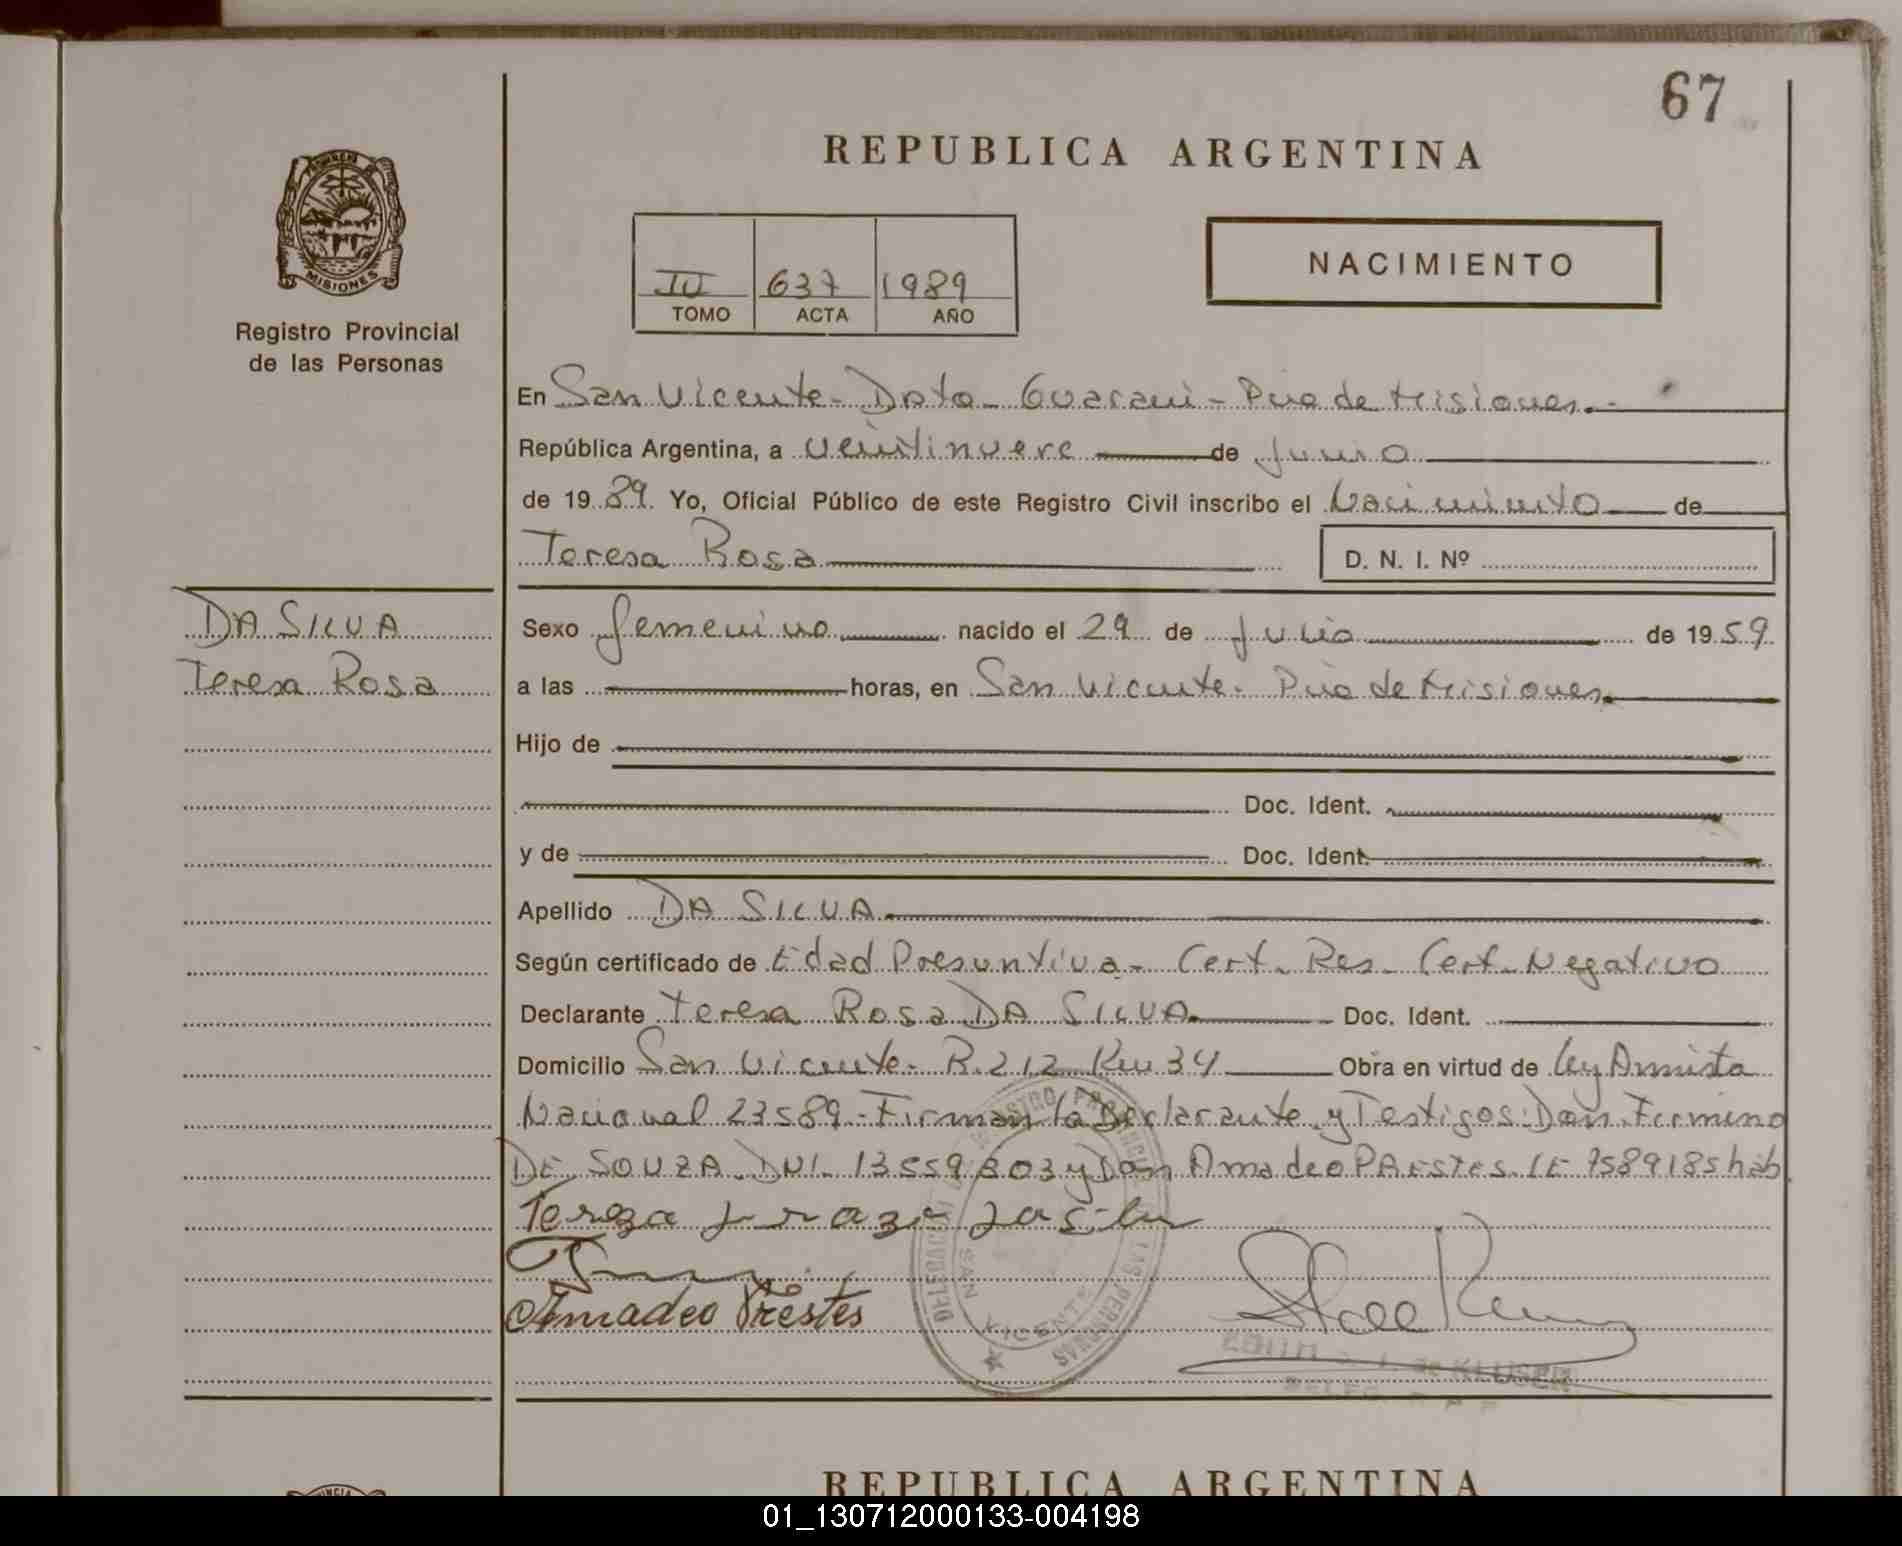 67
REPUBLICA ARGENTINA
PROVINCIA
MISIONES
Registro Provincial
de las Personas
IV 637 1989
TOMO ACTA AÑO
NACIMIENTO
En San Vicente - Dpto - Guaraní - Pcia de Misiones.-
República Argentina, a veintinueve de Junio
de 19 89. Yo, Oficial Público de este Registro Civil inscribo el Nacimiento de
Teresa Rosa D. N. I. Nº
DA SILVA
Teresa Rosa
Sexo femenino nacido el 29 de Julio de 19 59
a las horas, en San Vicente. Pcia de Misiones
Hijo de
Doc. Ident.
y de Doc. Ident.
Apellido DA SILVA
Según certificado de Edad Presuntiva - Cert. Res. Cert. Negativo
Declarante Teresa Rosa DA SILVA Doc. Ident.
Domicilio San Vicente - R. 212 Km 34 Obra en virtud de Ley Amnista
Nacional 23589.- Firman la Declarante y Testigos: Don Firmino
DE SOUZA DNI 13559803 y Don Amadeo PRESTES LE 7589185 hab.
Tereza
Amadeo Prestes
SAN VICENTE
de KLUSER
REPUBLICA ARGENTINA
01_130712000133-004198